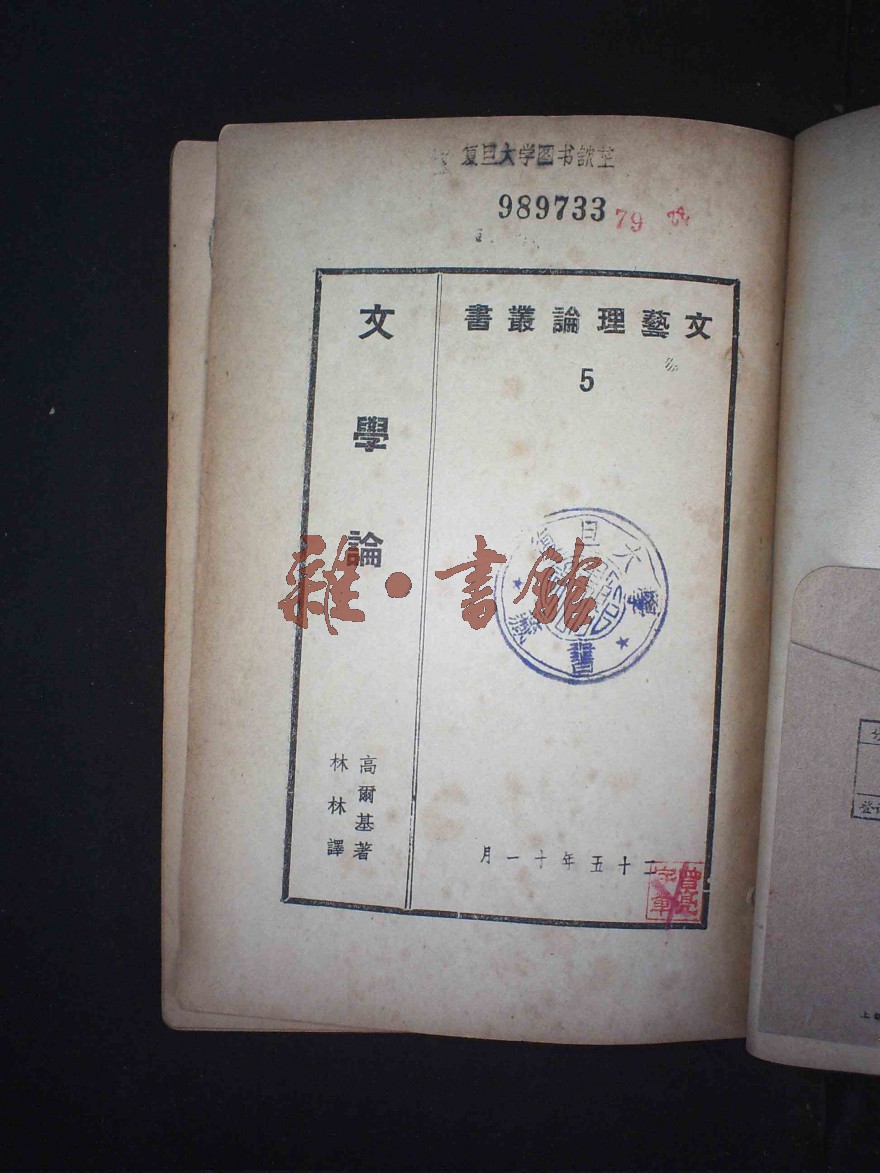 复旦大学图书馆
989733
79
文藝理論叢書
5
文學論
高爾基著
林林譯
二十五年十一月
雜·書館